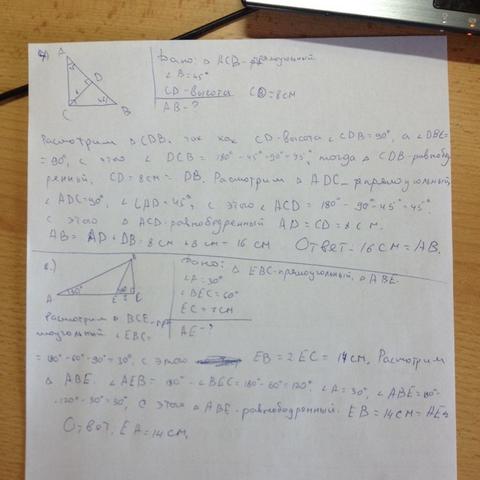 A
D
C
B
Дано: △ ACB - прямоугольный
∠B = 45°
CD - высота CD = 8 см
AB - ?
Расмотрим △ CDB, так как CD - высота ∠ CDB = 90°, а ∠ DBC =
= 90°, с этого ∠ DCB = 180° - 45° - 90° = 45°, тогда △ CDB - равнобед
ренный, CD = 8 см = DB. Расмотрим △ ADC - прямоугольный,
∠ ADC = 90°, ∠ CAD = 45°, с этого ∠ ACD = 180° - 90° - 45° = 45°
с этого △ ACD - равнобедренный AD = CD = 8 см.
AB = AD + DB = 8 см + 8 см = 16 см Ответ - 16 см = AB.
8.)
A 30° 60° E C
Дано: △ EBC - прямоугольный, △ ABE.
∠A = 30°
∠BEC = 60°
EC = 7 см
AE - ?
Расмотрим △ BCE - пря
моугольный ∠ EBC =
= 180° - 60° - 90° = 30°, с этого EB = 2 EC = 14 см. Расмотрим
△ ABE. ∠AEB = 180° - ∠BEC = 180° - 60° = 120°. ∠A = 30°, ∠ABE = 180° -
- 120° - 30° = 30°, с этого △ ABE - равнобедренный. EB = 14 см = AE
Ответ. EA = 14 см.